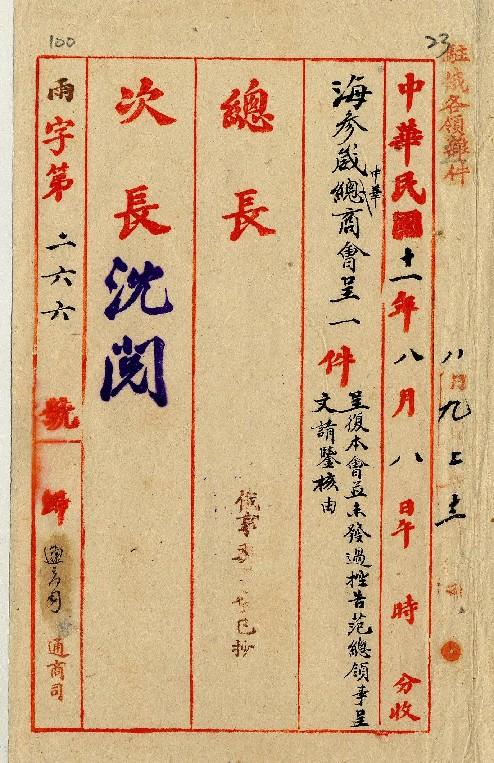 23
駐俄各領雜件
八月九上十一
中華民國十一年八月八日午 時 分收
海參崴中華總商會呈一件
呈復本會並未發過控告范總領事呈
文請鑒核由
總長
次長 沈閱
雨字第二六六號歸
通商司
100